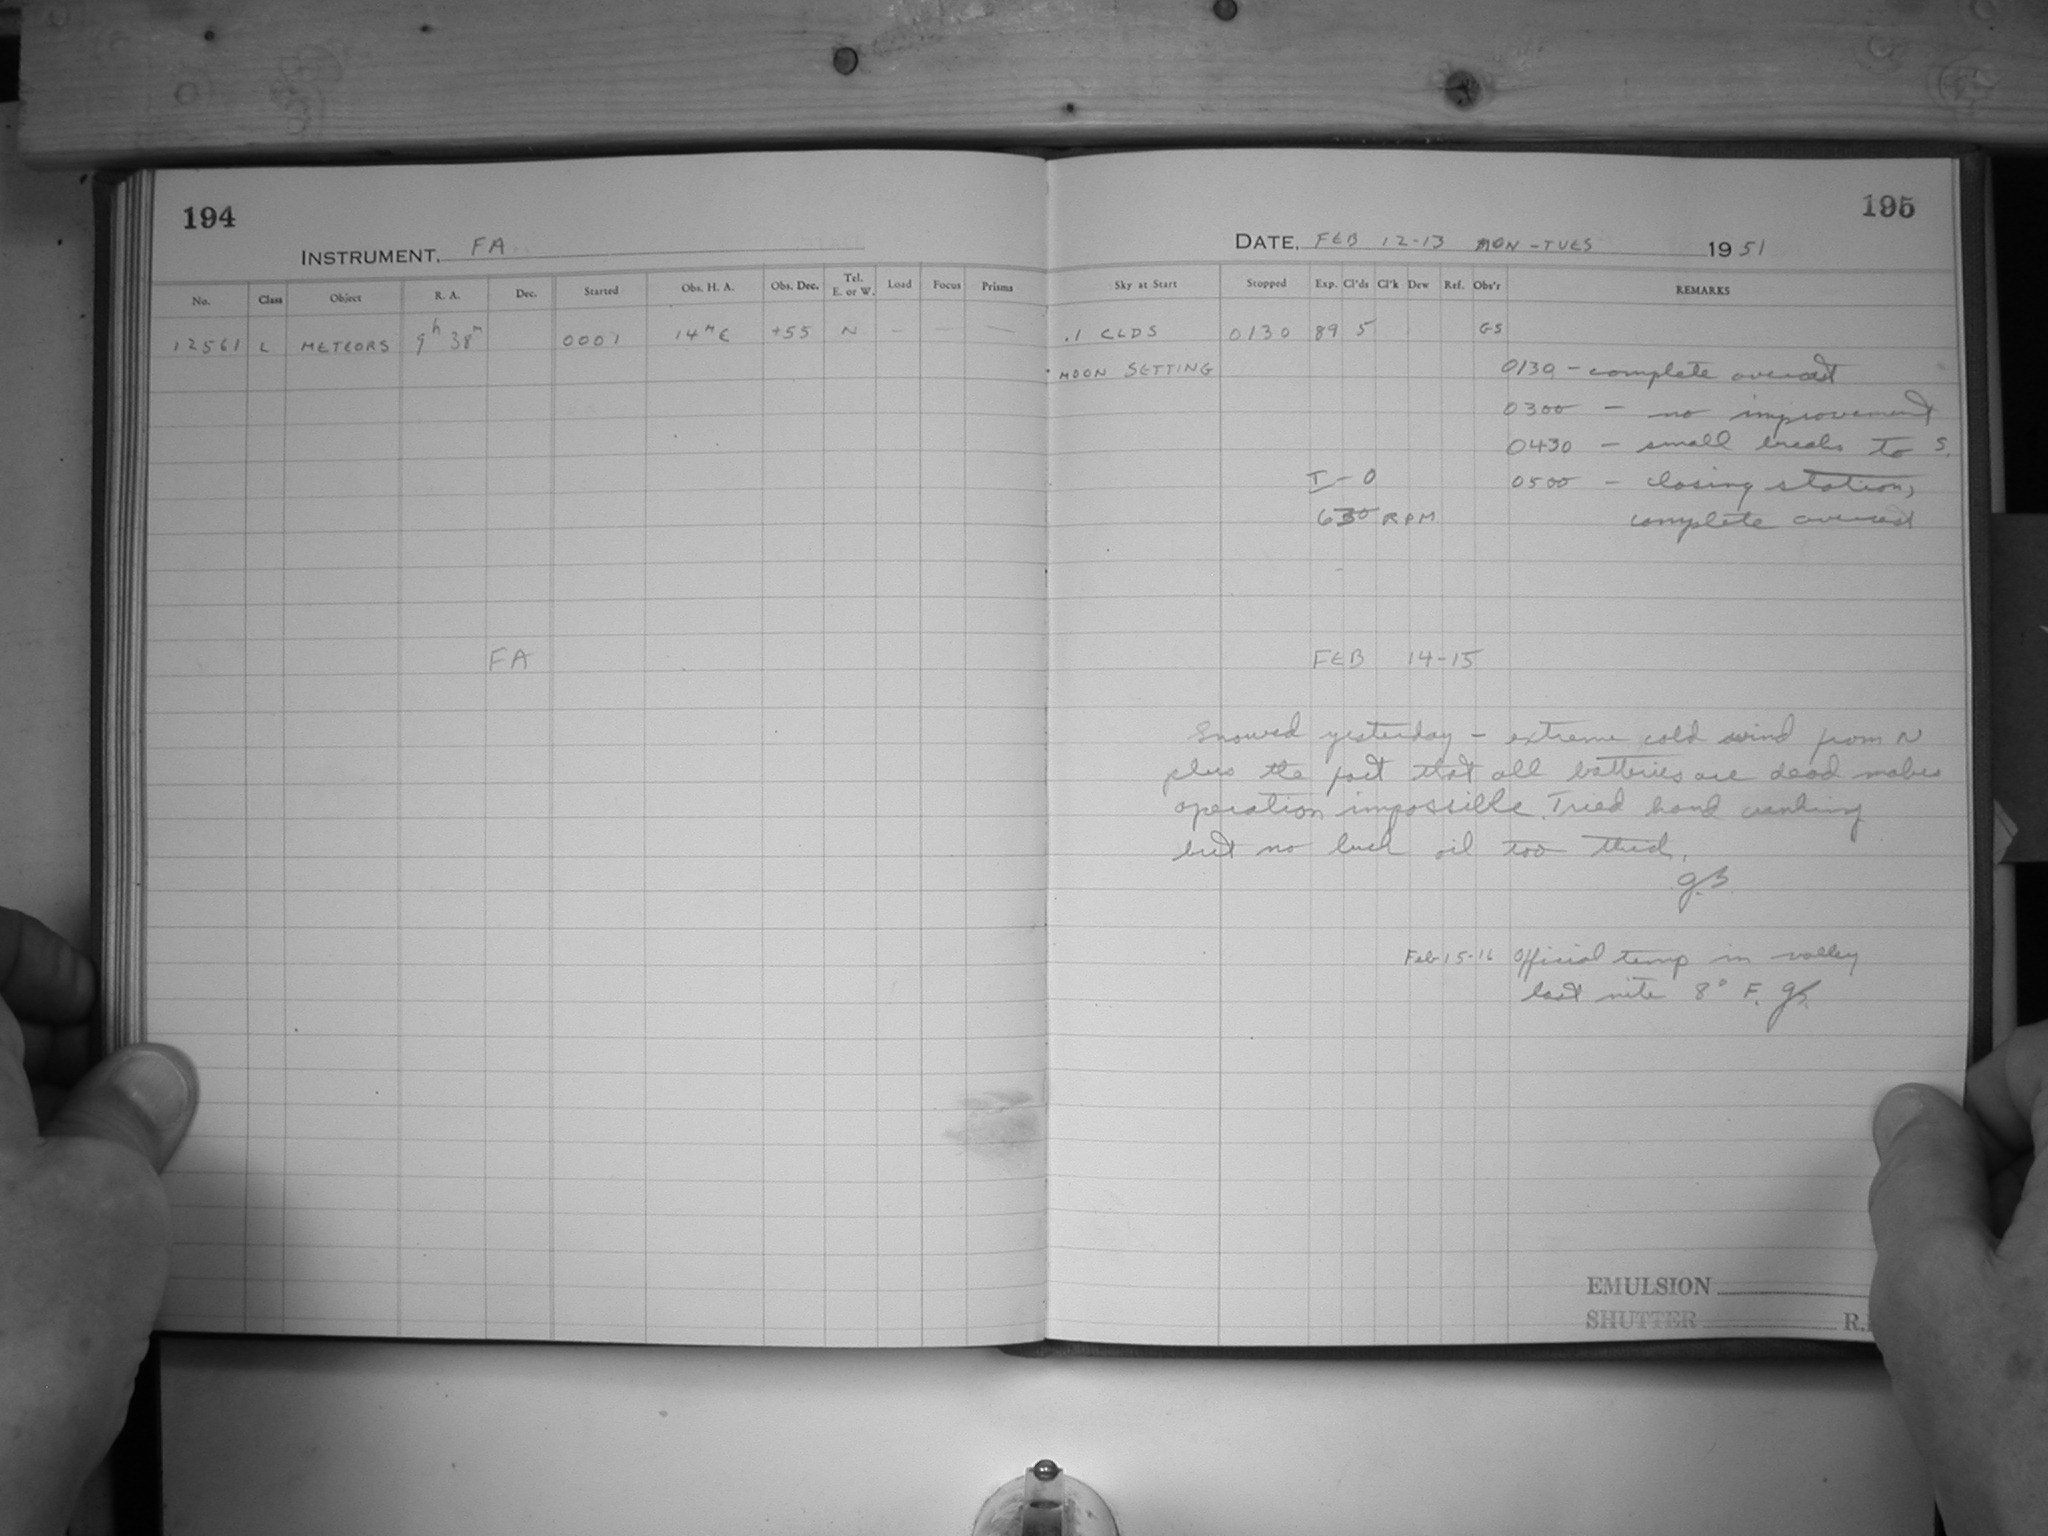 194
INSTRUMENT, FA
No. Class Object R. A. Dec. Started Obs. H. A. Obs. Dec. Tel. E. or W. Load Focus Prisms
12561 L METEORS 9h 38m 0001 14m E +55 N – – –
FA
195
DATE, FEB 12-13 MON-TUES 1951
Sky at Start Stopped Exp. Cl'ds Cl'k Dew Ref. Obs'r REMARKS
.1 CLDS 0130 89 5 GS
MOON SETTING 0130 - complete overcast
0300 - no improvement
0430 - small breaks to S.
I - 0 0500 - closing station,
630 RPM complete overcast
FEB 14-15
Snowed yesterday - extreme cold wind from N
plus the fact that all batteries are dead makes
operation impossible. Tried hand cranking
but no luck oil too thick.
G.S.
Feb 15-16 Official temp in valley
last nite 8° F. GS.
EMULSION
SHUTTER R.